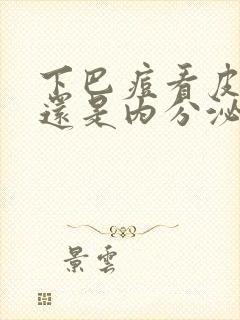 下巴痘看皮
還是內分泌
景雲